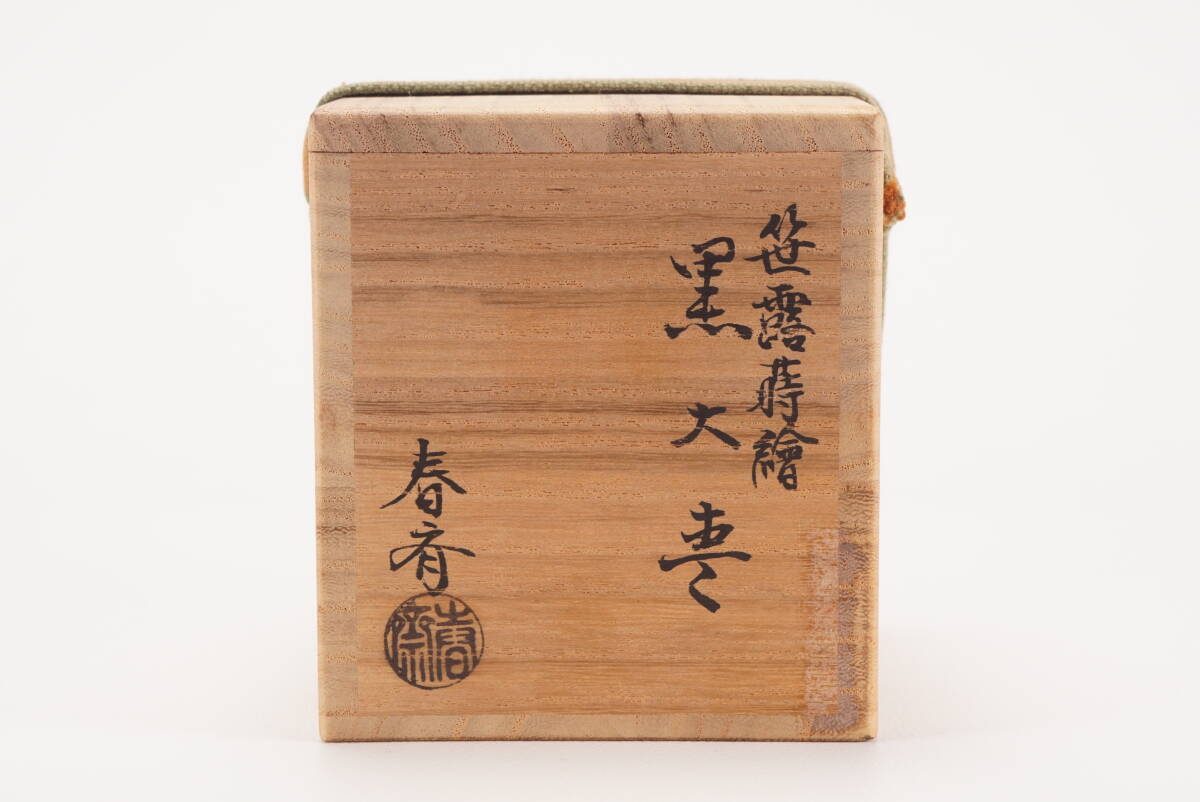 笹露蒔繪
黒大棗
春斉
春齋